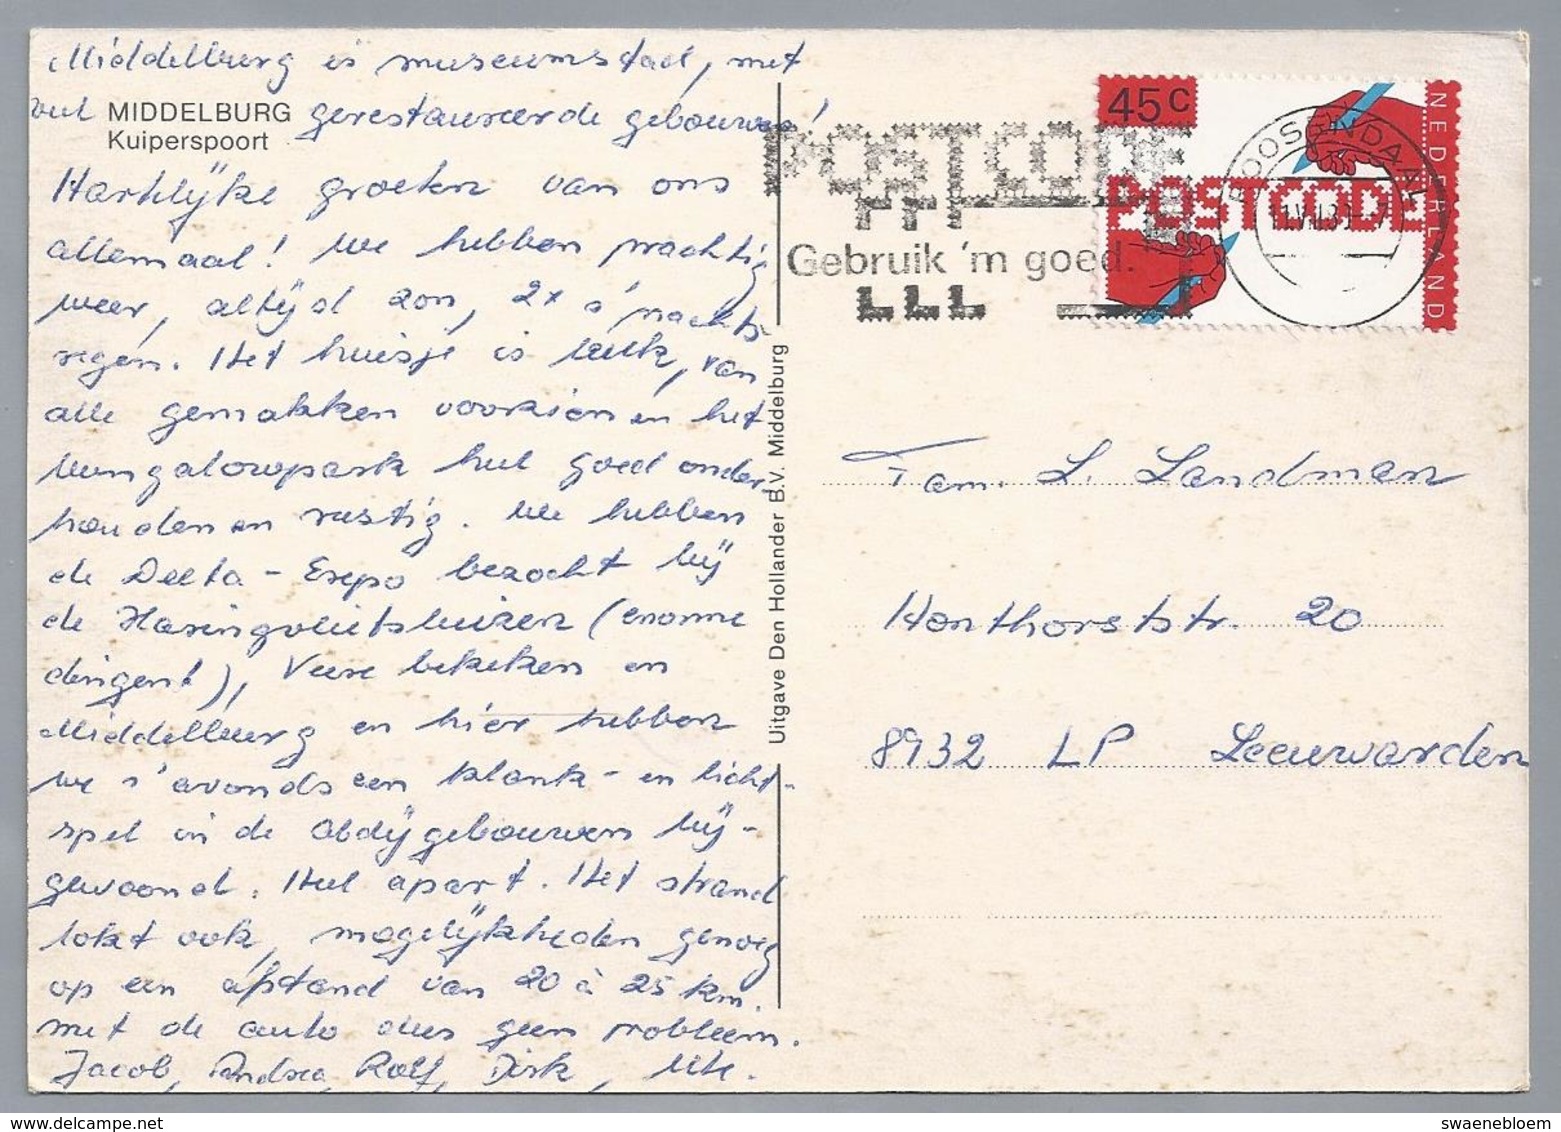 Middelburg is museumstad, met
veel gerestaureerde gebouwen!
MIDDELBURG
Kuiperspoort
Hartelijke groeten van ons
allemaal! We hebben prachtig
weer, altijd zon, 2x s'nachts
regen. Het huisje is leuk, van
alle gemakken voorzien en het
bungalowpark heel goed onder
houden en rustig. We hebben
de Delta-Expo bezocht bij
de Haringvlietsluizen (enorme
dingen!), Veere bekeken en
Middelburg en hier hebben
we s'avonds een klank- en licht-
spel in de abdijgebouwen bij-
gewoond. Heel apart. Het strand
lokt ook, mogelijkheden genoeg
op een afstand van 20 à 25 km.
met de auto dus geen probleem.
Jacob, Andrea, Rolf, Dirk, Ute.
Uitgave Den Hollander B.V. Middelburg
POSTCODE
Gebruik 'm goed.
45c
POSTCODE
NEDERLAND
ROOSENDAAL
Fam. L. Landman
Honthorststr. 20
8932 LP Leeuwarden
swaenebloem